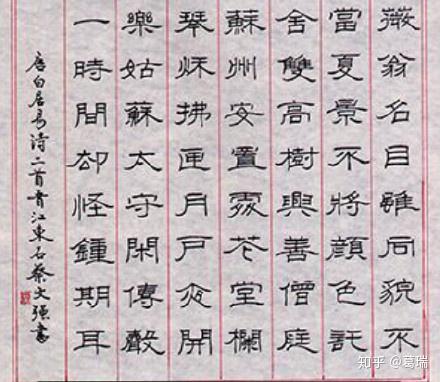 薇翁名目雖同貌不
當夏景不將顏色託
舍雙高樹興善僧庭
蘇州安置處花堂欄
琴秋拂匣月戶夜開
樂姑蘇太守閑傳聲
一時間却怪鍾期耳
唐白居易詩二首晉江東石蔡文强書
知乎 @葛瑞